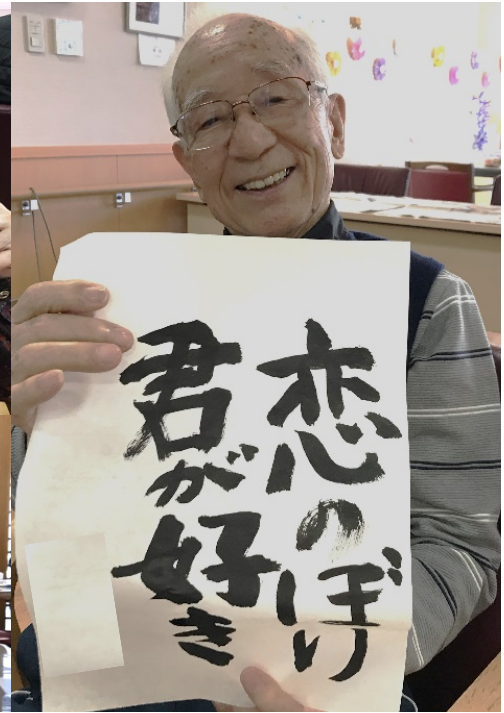 恋のぼり
君が好き